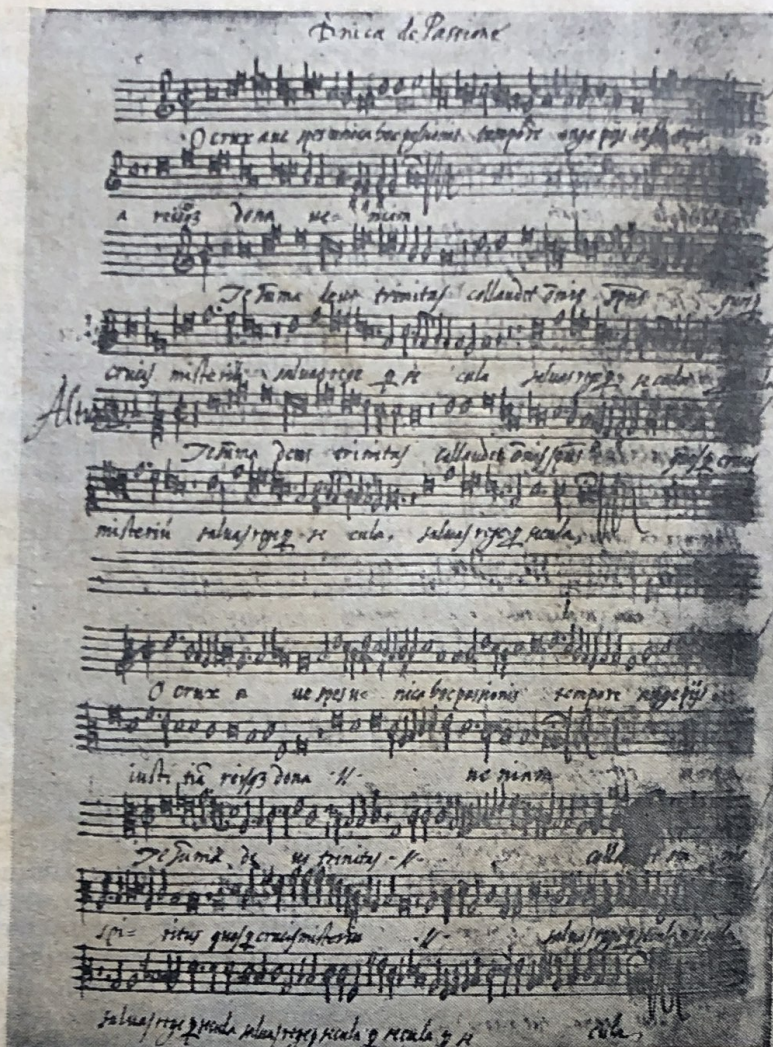 de Passione
O crux aue spes unica hoc pasionis tempore auge pijs
a reisq3 dona ue= niam
Te suma deus trinitas collaudet omis spus
crucis misteriu saluas rege p se cula saluas rege p secula
Altus
Te suma deus trinitas collaudet omis spus quos p crucis
misteriu saluas rege p se cula, saluas rege p secula,
O crux a ue spes u= nica hoc pasionis tempore auge pijs
iusti tia reisq3 dona -ij- ue niam
Te suma de us trinitas -ij-
spi= ritus quos p crucis misteriu -ij- saluas rege p secula
saluas rege p secula saluas rege p secula p secula p se cula